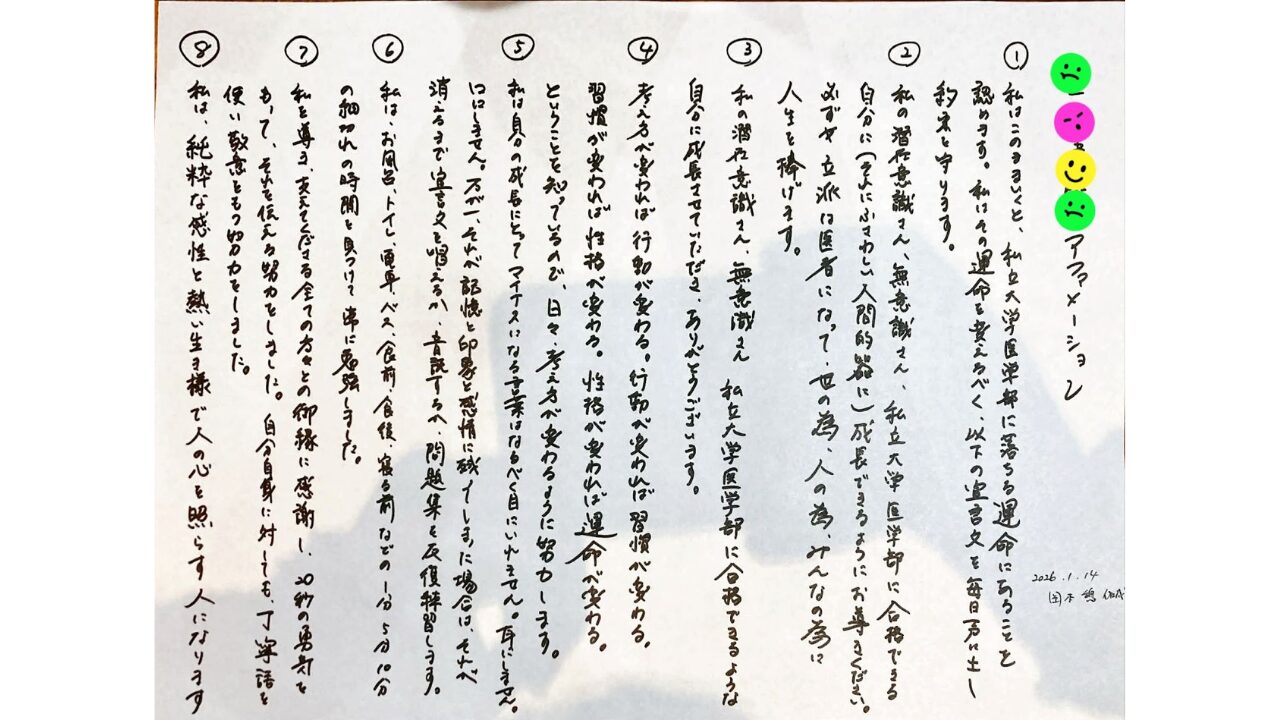 アファメーション
① 私はこのままいくと、私立大学医学部に落ちる運命にあることを
認めます。私はその運命を変えるべく、以下の宣言文を毎日声に出し
約束を守ります。
② 私の潜在意識さん、無意識さん、私立大学医学部に合格できる
自分に(それにふさわしい人間的器に)成長できるようにお導きください。
必ずや立派な医者になって、世の為、人の為、みんなの為に
人生を捧げます。
③ 私の潜在意識さん、無意識さん 私立大学医学部に合格できるような
自分に成長させていただき、ありがとうございます。
④ 考え方が変われば行動が変わる。行動が変われば習慣が変わる。
習慣が変われば性格が変わる。性格が変われば運命が変わる。
ということを知っているので、日々、考え方が変わるように努力します。
⑤ 私は自分の成長にとってマイナスになる言葉はなるべく目にいれません。耳にしません。
口にしません。万が一、それが記憶と印象と感情に残ってしまった場合は、それが
消えるまで宣言文を唱えるか、音読するか、問題集を反復練習します。
⑥ 私は、お風呂、トイレ、電車、バス、食前、食後、寝る前などの1分 5分 10分
の細切れの時間を見つけて常に勉強しました。
⑦ 私を導き、支えてくださる全ての方々との御縁に感謝し、20秒の勇気を
もって、それを伝える努力をしました。自分自身に対しても、丁寧語を
使い敬意をもつ努力をしました。
⑧ 私は、純粋な感性と熱い生き様で人の心を照らす人になります
2026.1.14